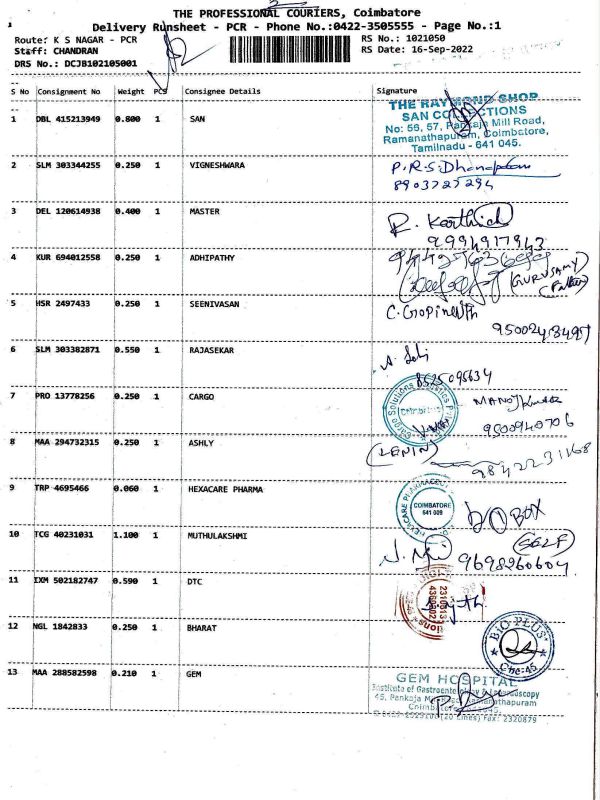 THE PROFESSIONAL COURIERS, Coimbatore
Delivery Runsheet - PCR - Phone No.:0422-3505555 - Page No.:1
Route: K S NAGAR - PCR RS No.: 1021050
Staff: CHANDRAN RS Date: 16-Sep-2022
DRS No.: DCJB102105001
S No Consignment No Weight PCS Consignee Details Signature
1 DBL 415213949 0.800 1 SAN
THE RAYMOND SHOP
SAN COLLECTIONS
No: 56, 57, Pankaja Mill Road,
Ramanathapuram, Coimbatore,
Tamilnadu - 641 045.
2 SLM 303344255 0.250 1 VIGNESHWARA
8903727294
3 DEL 120614938 0.400 1 MASTER
R. Karthick
9994917943
4 KUR 694012558 0.250 1 ADHIPATHY
(GURUSAMY
5 HSR 2497433 0.250 1 SEENIVASAN
C. Gopinath
6 SLM 303382871 0.550 1 RAJASEKAR
8525095634
7 PRO 13778256 0.250 1 CARGO
Cargo Solutions Logistics
MANOJ Kumar
9500940706
8 MAA 294732315 0.250 1 ASHLY
(LENIN)
9842231168
9 TRP 4695466 0.060 1 HEXACARE PHARMA
COIMBATORE
641 009
BOX
10 TCG 40231031 1.100 1 MUTHULAKSHMI
(SELF)
9698260604
11 IXM 502182747 0.590 1 DTC
12 NGL 1842833 0.250 1 BHARAT
BIO PLUS
Cbe-45
13 MAA 288582598 0.210 1 GEM
GEM HOSPITAL
Institute of Gastroenterology & Laparoscopy
45, Pankaja Mill Road, Ramanathapuram
Coimbatore
Fax: 2320879